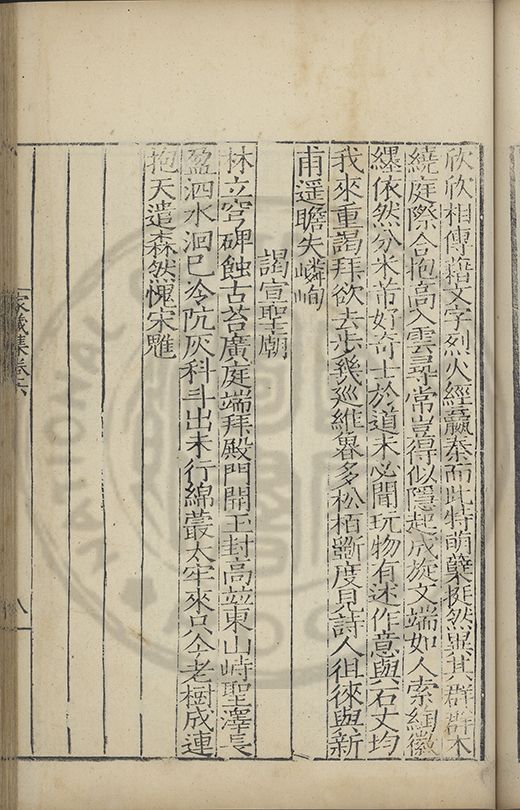 欣欣相傳藉文字烈火經嬴秦而此特萌蘖挺然異其群群木
繞庭際合抱高入雲尋常豈得似隱起成旋文端如人索綯徽
纆依然分米芾好奇士於道未必聞玩物有述作意與石丈均
我來重謁拜欲去步幾巡維魯多松栢斷度見詩人徂徠與新
甫遥瞻失嶙峋
謁宣聖廟
林立穹碑蝕古苔廣庭端拜殿門開玉封高並東山峙聖澤長
盈泗水洄已冷阬灰科斗出未行綿蕞太牢來只今老樹成連
抱天遣森然愧宋魋
家藏集卷六
八